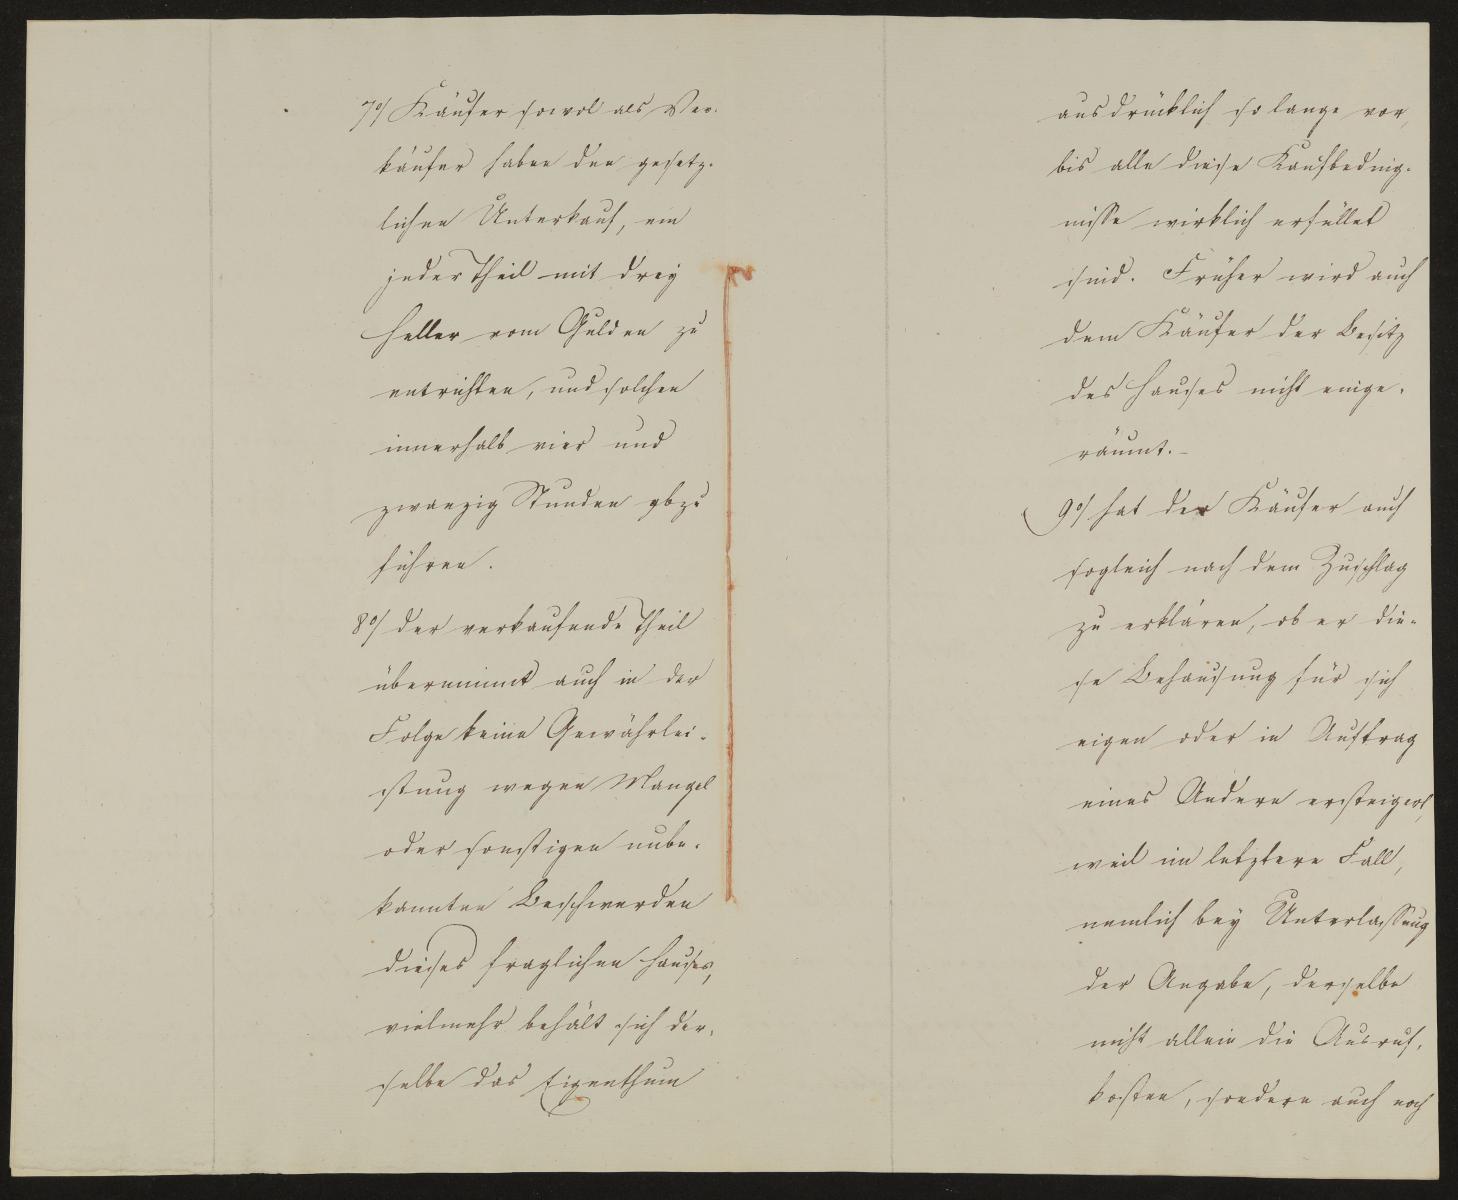 7º/ Käufer sowol als Ver-
käufer haben den gesetz-
lichen Unterkauf, ein
jeder Theil mit drey
Heller vom Gulden zu
entrichten, und solchen
innerhalb vier und
zwanzig Stunden abzu
führen.
8º/ der verkaufende Theil
übernimmt auch in der
Folge keine Gewährlei-
stung wegen Mangel
oder sonstigen unbe-
kannten Beschwerden
dieses fraglichen Hauses,
vielmehr behält sich der-
selbe das Eigenthum
ausdrücklich so lange vor,
bis alle diese Kaufbeding-
nisse wirklich erfüllet
sind. Früher wird auch
dem Käufer der Besitz
des Hauses nicht einge-
räumt.-
9º/ hat der Käufer auch
sogleich nach dem Zuschlag
zu erklären, ob er die-
se Behausung für sich
eigen oder in Auftrag
eines Andern ersteigert,
weil im letztern Fall,
nemlich bey Unterlassung
der Angabe, derselbe
nicht allein die Ausruf-
kosten, sondern auch noch